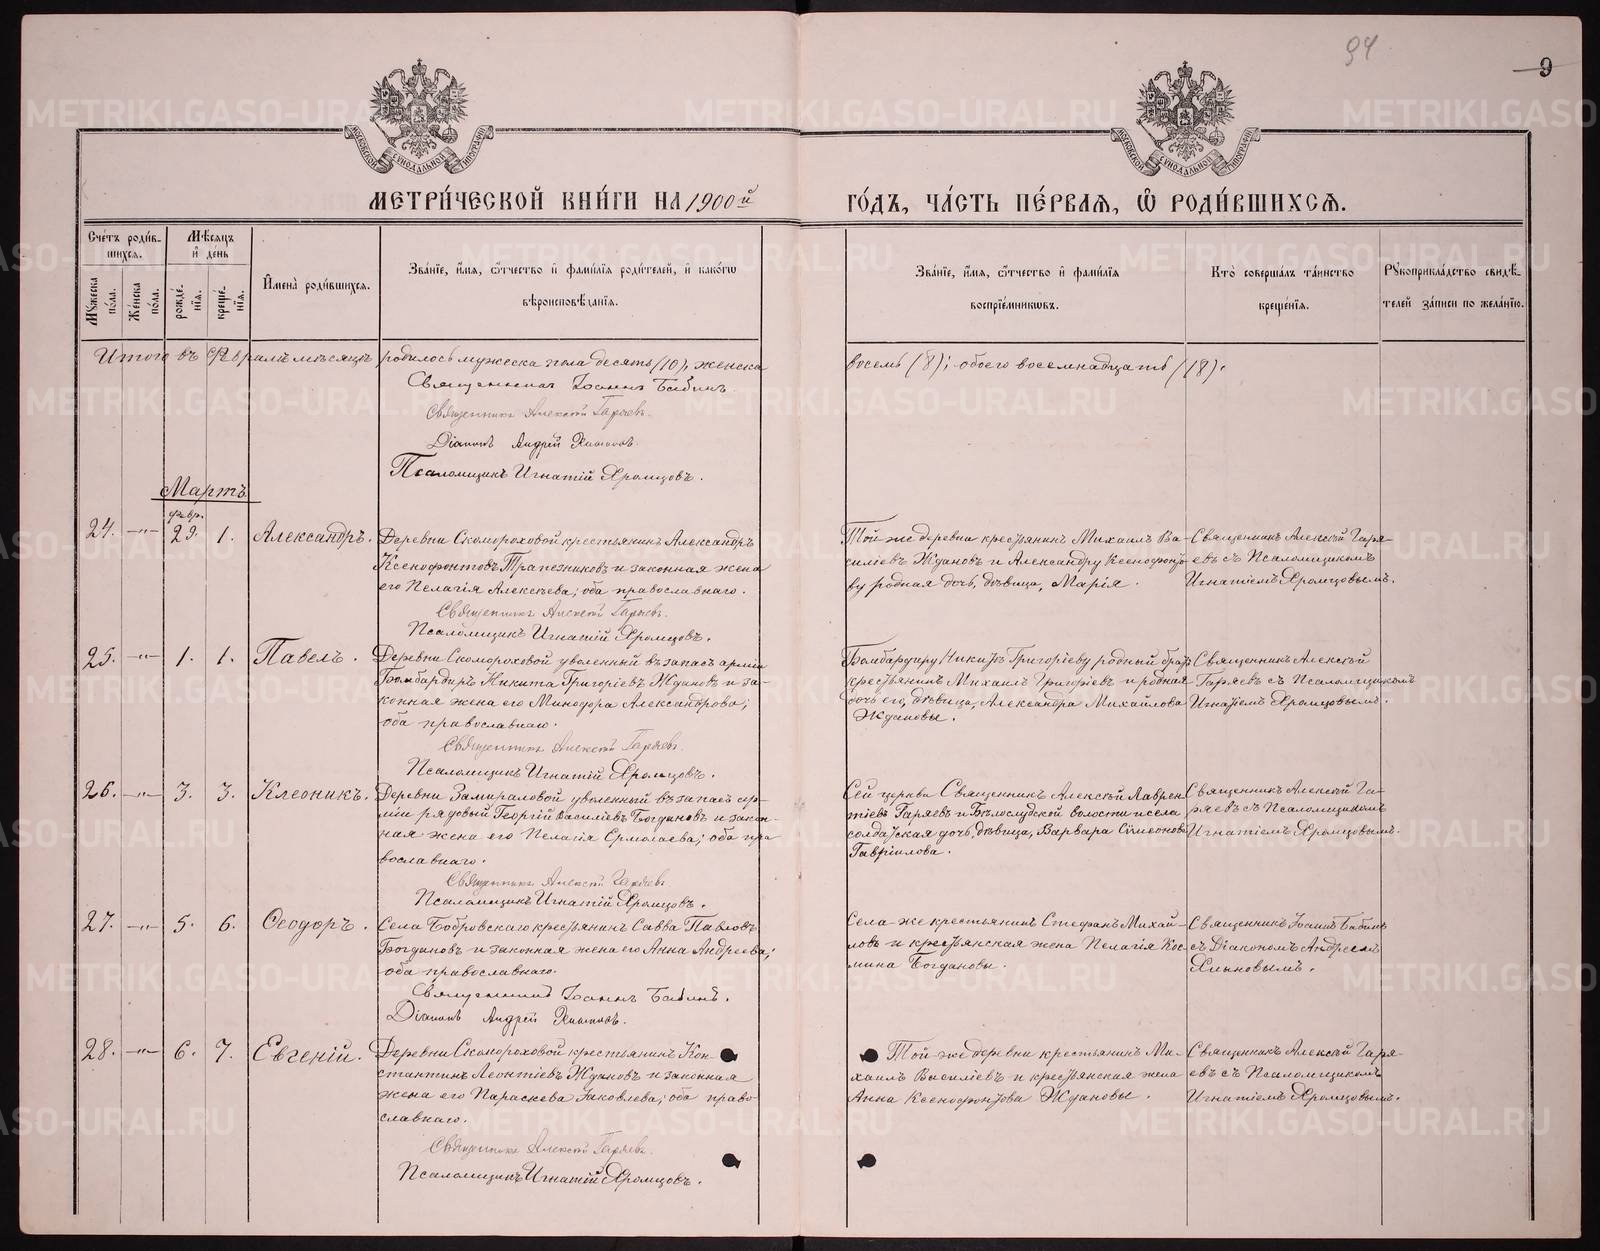 94
9
МОСКОВСКОЙ СѴНОДАЛЬНОЙ ТИПОГРАФІИ
МОСКОВСКОЙ СѴНОДАЛЬНОЙ ТИПОГРАФІИ
МЕТРИ́ЧЕСКОЙ КНИ́ГИ НА 1900й ГО́ДЪ, ЧА́СТЬ ПЕ́РВАЯ, Ѡ РОДИ́ВШИХСЯ.
Сче́тъ роди́в-
шихся.
Мѣсяцъ
и де́нь
Мужеска
по́ла.
Же́нска
по́ла.
рожде́-
нія.
креще́-
нія.
Имена̀ роди́вшихся.
Зва́ніе, и́мя, ѻ́тчество и фами́лія роди́телей, и како́гѡ
вѣроисповѣ́данія.
Зва́ніе, и́мя, ѻ́тчество и фами́лія
воспріе́мниковъ.
Кто̀ соверша́лъ та́инство
креще́нія.
Рукоприкла́дство свидѣ́-
телей за́писи по жела́нію.
Итого въ Февралѣ мѣсяцѣ родилось мужеска пола десять (10), женска восемь (8); обоего восемнадцать (18).
Священникъ Іоаннъ Бабинъ.
Священникъ Алексій Гаряевъ.
Діаконъ Андрей Хлыновъ.
Псаломщикъ Игнатій Хромцовъ.
Мартъ
февр.
24. —"— 29. 1. Александръ.
Деревни Скомороховой крестьянинъ Александръ
Ксенофонтовъ Трапезниковъ и законная жена
его Пелагія Алексѣева; оба православнаго.
Священникъ Алексій Гаряевъ.
Псаломщикъ Игнатій Хромцовъ.
Той же деревни крестьянинъ Михаилъ Ва-
силіевъ Ждановъ и Александру Ксенофонто-
ву родная дочь, дѣвица, Марія.
Священникъ Алексій Гаря-
евъ съ Псаломщикомъ
Игнатіемъ Хромцовымъ.
25. —"— 1. 1. Павелъ.
Деревни Скомороховой уволенный въ запасъ арміи
Бомбардиръ Никита Григоріевъ Ждановъ и за-
конная жена его Минодора Александрова;
оба православнаго.
Священникъ Алексій Гаряевъ.
Псаломщикъ Игнатій Хромцовъ.
Бомбардиру Никитѣ Григоріеву родный братъ
крестьянинъ Михаилъ Григоріевъ и родная
дочь его, дѣвица, Александра Михайлова
Ждановы.
Священникъ Алексій
Гаряевъ съ Псаломщикомъ
Игнатіемъ Хромцовымъ.
26. —"— 3. 3. Клеоникъ.
Деревни Замираловой уволенный въ запасъ ар-
міи рядовый Георгій Василіевъ Богдановъ и закон-
ная жена его Пелагія Ермолаева; оба пра
вославнаго.
Священникъ Алексій Гаряевъ
Псаломщикъ Игнатій Хромцовъ.
Сей церкви Священникъ Алексій Лаврен
тіевъ Гаряевъ и Бѣлослудской волости и села
солдатская дочь, дѣвица, Варвара Сѵмеонова
Гавріилова.
Священникъ Алексій Га-
ряевъ съ Псаломщикомъ
Игнатіемъ Хромцовымъ.
27. —"— 5. 6. Ѳеодоръ.
Села Бобровскаго крестьянинъ Савва Павловъ
Богдановъ и законная жена его Анна Андреева;
оба православнаго.
Священникъ Іоаннъ Бабинъ.
Діаконъ Андрей Хлыновъ.
Села-же крестьянинъ Стефанъ Михай-
ловъ и крестьянская жена Пелагія Кос-
мина Богдановы.
Священникъ Іоаннъ Бабинъ
съ Діакономъ Андреемъ
Хлыновымъ.
28. —"— 6. 7. Евгеній.
Деревни Скомороховой крестьянинъ Кон-
стантинъ Леонтіевъ Ждановъ и законная
жена его Параскева Іаковлева; оба право-
славнаго.
Священникъ Алексій Гаряевъ.
Псаломщикъ Игнатій Хромцовъ.
Той же деревни крестьянинъ Ми-
хаилъ Василіевъ и крестьянская жена
Анна Ксенофонтова Ждановы.
Священникъ Алексій Гаря-
евъ съ Псаломщикомъ
Игнатіемъ Хромцовымъ.